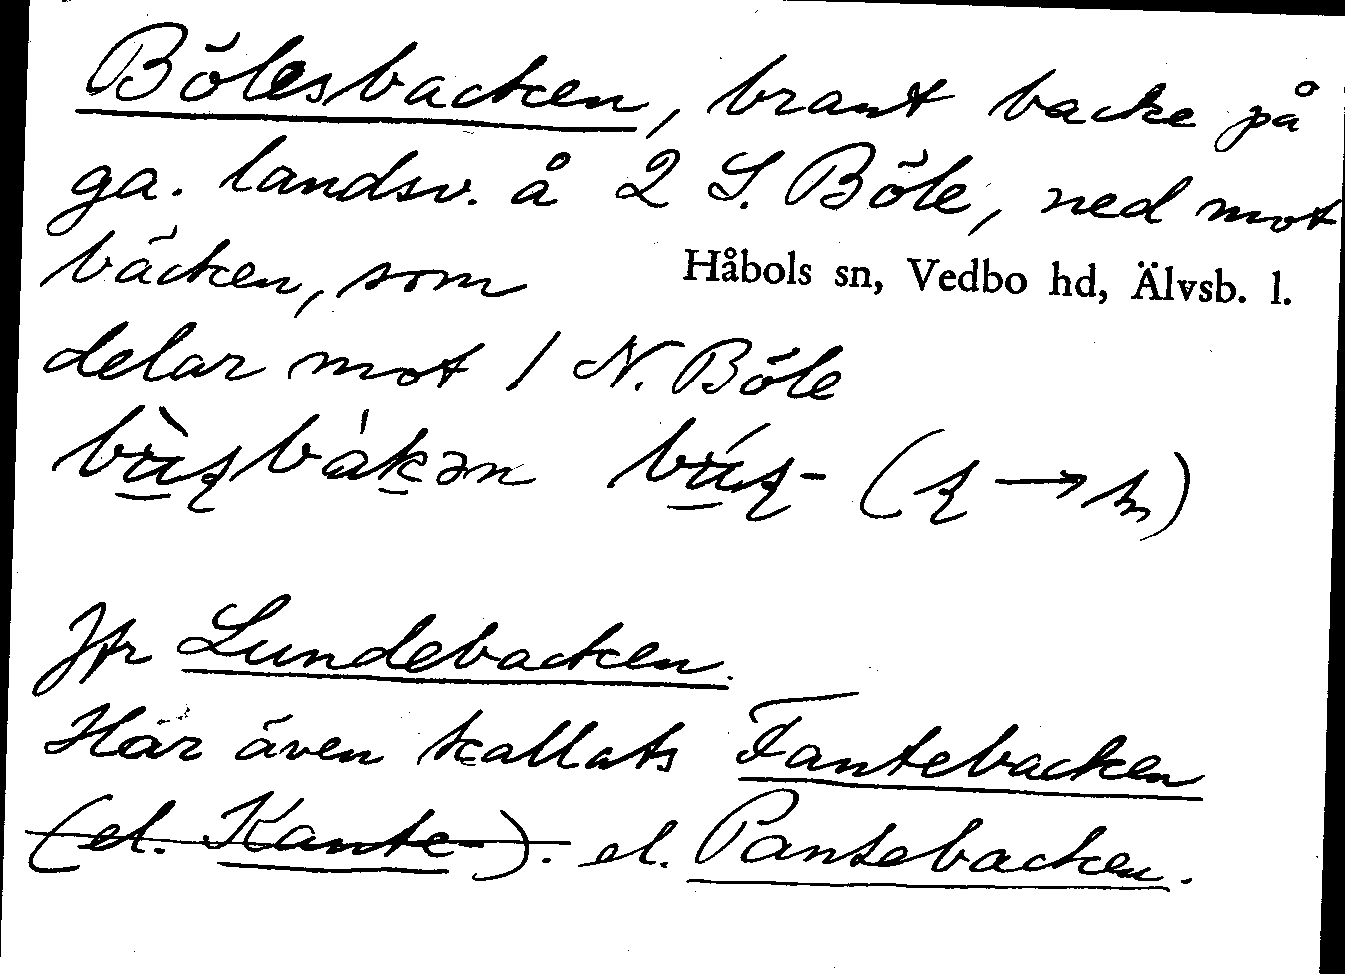 Bölesbacken, brant backe på
ga. landsv. å 2 S. Böle, ned mot
bäcken, som
Håbols sn, Vedbo hd, Älvsb. l.
delar mot 1 N. Böle
Jfr Lundebacken.
Har även kallats Fantebacken
(el. Kante-). el. Pantebacken.